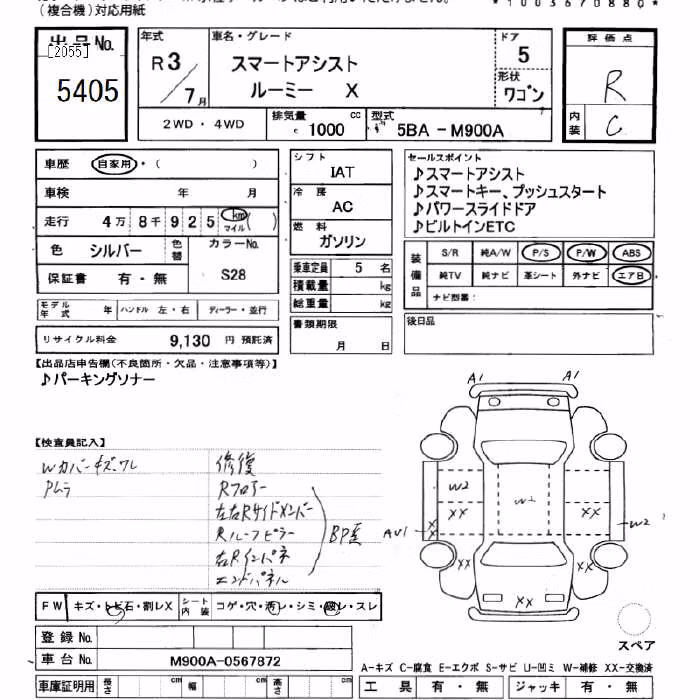 (複合機)対応用紙
*1003670880*
出品No.
[2055]
5405
年式
R3
7月
車名・グレード
スマートアシスト
ルーミー X
ドア
5
形状
ワゴン
評価点
R
内装
C
2WD・4WD
排気量
1000 cc
型式
5BA-M900A
車歴 自家用・( )
車検 年 月
走行 4万8千925 km マイル ( )
色 シルバー 色替
カラーNo.
S28
保証書 有・無
モデル年式 年 ハンドル 左・右 ディーラー・並行
リサイクル料金 9,130 円 預託済
シフト
IAT
冷房
AC
燃料
ガソリン
乗車定員 5 名
積載量 kg
総重量 kg
書類期限
月 日
セールスポイント
♪スマートアシスト
♪スマートキー、プッシュスタート
♪パワースライドドア
♪ビルトインETC
装備品
S/R 純A/W P/S P/W ABS
純TV 純ナビ 革シート 外ナビ エアB
ナビ型番:
後日品
【出品店申告欄(不良箇所・欠品・注意事項等)】
♪パーキングソナー
【検査員記入】
Wカバーキズ、ワレ
Pムラ
修復
Rフロアー
左右Rサイドメンバー
Rルーフピラー
右Rインパネ
エンドパネル
BP歪
A1
A1
W2
XX
W2
XX
W2
AU1
X
X
XX
XX
XX
スペア
FW キズ・トビ石・割レX
シート内装 コゲ・穴・汚レ・シミ・破レ・スレ
登録No.
車台No. M900A-0567872
車庫証明用 長さ cm 幅 cm 高さ cm
A-キズ C-腐食 E-エクボ S-サビ U-凹ミ W-補修 XX-交換済
工具 有・無 ジャッキ 有・無